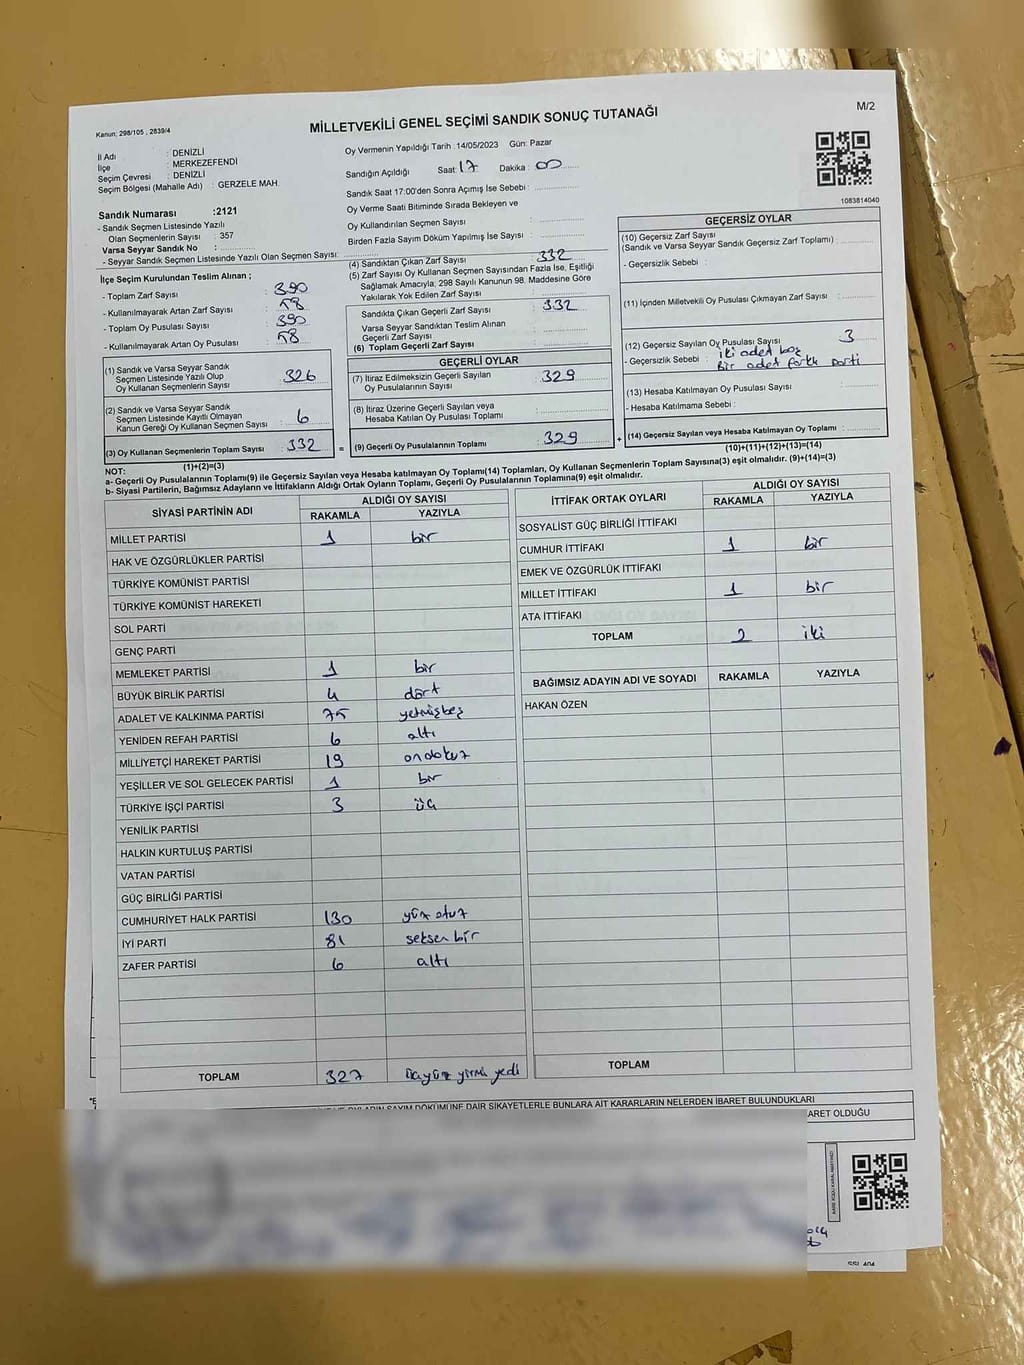 M/2
Kanun: 298/105 , 2839/4
MİLLETVEKİLİ GENEL SEÇİMİ SANDIK SONUÇ TUTANAĞI
İl Adı : DENİZLİ
İlçe : MERKEZEFENDİ
Seçim Çevresi : DENİZLİ
Seçim Bölgesi (Mahalle Adı) : GERZELE MAH.
Sandık Numarası :2121
- Sandık Seçmen Listesinde Yazılı
Olan Seçmenlerin Sayısı : 357
Varsa Seyyar Sandık No :
- Seyyar Sandık Seçmen Listesinde Yazılı Olan Seçmen Sayısı:
Oy Vermenin Yapıldığı Tarih :14/05/2023 Gün: Pazar
Sandığın Açıldığı Saat: 17 Dakika : 00
Sandık Saat 17:00'den Sonra Açımış İse Sebebi :
Oy Verme Saati Bitiminde Sırada Bekleyen ve
Oy Kullandırılan Seçmen Sayısı :
Birden Fazla Sayım Döküm Yapılmış İse Sayısı :
1083814040
İlçe Seçim Kurulundan Teslim Alınan ;
- Toplam Zarf Sayısı : 390
- Kullanılmayarak Artan Zarf Sayısı : 58
- Toplam Oy Pusulası Sayısı : 390
- Kullanılmayarak Artan Oy Pusulası : 58
(1) Sandık ve Varsa Seyyar Sandık
Seçmen Listesinde Yazılı Olup
Oy Kullanan Seçmenlerin Sayısı : 326
(2) Sandık ve Varsa Seyyar Sandık
Seçmen Listesinde Kayıtlı Olmayan
Kanun Gereği Oy Kullanan Seçmen Sayısı : 6
(3) Oy Kullanan Seçmenlerin Toplam Sayısı : 332
(1)+(2)=(3)
(4) Sandıktan Çıkan Zarf Sayısı : 332
(5) Zarf Sayısı Oy Kullanan Seçmen Sayısından Fazla İse, Eşitliği
Sağlamak Amacıyla; 298 Sayılı Kanunun 98. Maddesine Göre
Yakılarak Yok Edilen Zarf Sayısı :
Sandıkta Çıkan Geçerli Zarf Sayısı : 332
Varsa Seyyar Sandıktan Teslim Alınan
Geçerli Zarf Sayısı :
(6) Toplam Geçerli Zarf Sayısı :
GEÇERLİ OYLAR
(7) İtiraz Edilmeksizin Geçerli Sayılan
Oy Pusulalarının Sayısı : 329
(8) İtiraz Üzerine Geçerli Sayılan veya
Hesaba Katılan Oy Pusulası Toplamı :
= (9) Geçerli Oy Pusulalarının Toplamı : 329
GEÇERSİZ OYLAR
(10) Geçersiz Zarf Sayısı
(Sandık ve Varsa Seyyar Sandık Geçersiz Zarf Toplamı) :
- Geçersizlik Sebebi :
(11) İçinden Milletvekili Oy Pusulası Çıkmayan Zarf Sayısı :
(12) Geçersiz Sayılan Oy Pusulası Sayısı : 3
- Geçersizlik Sebebi : iki adet boş
Bir adet farklı parti
(13) Hesaba Katılmayan Oy Pusulası Sayısı :
- Hesaba Katılmama Sebebi :
+ (14) Geçersiz Sayılan veya Hesaba Katılmayan Oy Toplamı :
(10)+(11)+(12)+(13)=(14)
NOT:
a- Geçerli Oy Pusulalarının Toplamı(9) ile Geçersiz Sayılan veya Hesaba katılmayan Oy Toplamı(14) Toplamları, Oy Kullanan Seçmenlerin Toplam Sayısına(3) eşit olmalıdır. (9)+(14)=(3)
b- Siyasi Partilerin, Bağımsız Adayların ve İttifakların Aldığı Ortak Oyların Toplamı, Geçerli Oy Pusulalarının Toplamına(9) eşit olmalıdır.
SİYASİ PARTİNİN ADI ALDIĞI OY SAYISI
RAKAMLA YAZIYLA
MİLLET PARTİSİ 1 bir
HAK VE ÖZGÜRLÜKLER PARTİSİ
TÜRKİYE KOMÜNİST PARTİSİ
TÜRKİYE KOMÜNİST HAREKETİ
SOL PARTİ
GENÇ PARTİ
MEMLEKET PARTİSİ 1 bir
BÜYÜK BİRLİK PARTİSİ 4 dört
ADALET VE KALKINMA PARTİSİ 75 yetmişbeş
YENİDEN REFAH PARTİSİ 6 altı
MİLLİYETÇİ HAREKET PARTİSİ 19 ondokuz
YEŞİLLER VE SOL GELECEK PARTİSİ 1 bir
TÜRKİYE İŞÇİ PARTİSİ 3 üç
YENİLİK PARTİSİ
HALKIN KURTULUŞ PARTİSİ
VATAN PARTİSİ
GÜÇ BİRLİĞİ PARTİSİ
CUMHURİYET HALK PARTİSİ 130 yüz otuz
İYİ PARTİ 81 seksen bir
ZAFER PARTİSİ 6 altı
TOPLAM 327 üçyüz yirmi yedi
İTTİFAK ORTAK OYLARI ALDIĞI OY SAYISI
RAKAMLA YAZIYLA
SOSYALİST GÜÇ BİRLİĞİ İTTİFAKI
CUMHUR İTTİFAKI 1 bir
EMEK VE ÖZGÜRLÜK İTTİFAKI
MİLLET İTTİFAKI 1 bir
ATA İTTİFAKI
TOPLAM 2 iki
BAĞIMSIZ ADAYIN ADI VE SOYADI RAKAMLA YAZIYLA
HAKAN ÖZEN
TOPLAM
SAYIM DÖKÜMÜNE DAİR ŞİKAYETLERLE BUNLARA AİT KARARLARIN NELERDEN İBARET BULUNDUKLARI
ARET OLDUĞU